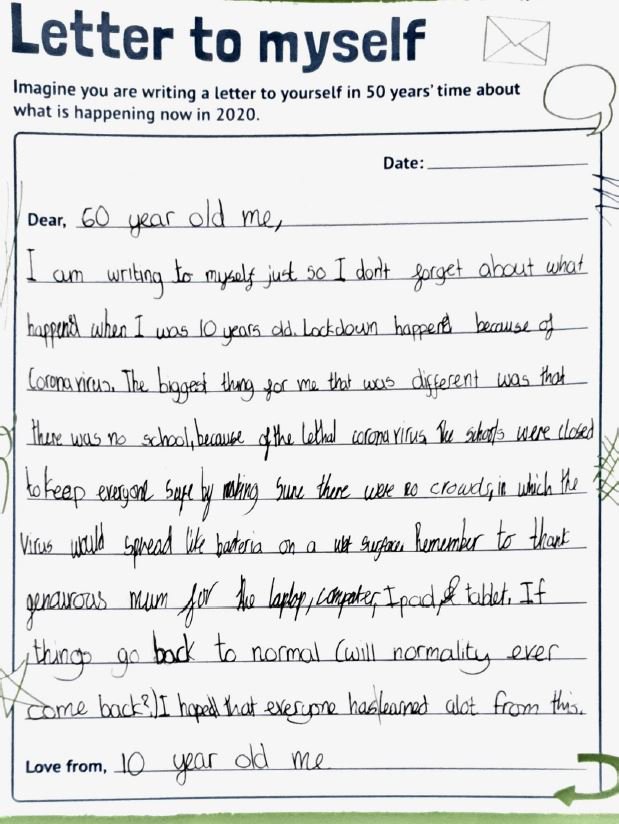 Letter to myself
Imagine you are writing a letter to yourself in 50 years' time about
what is happening now in 2020.
Date:
Dear, 60 year old me,
I am writing to myself just so I don't forget about what
happen'd when I was 10 years old. Lockdown happen'd because of
Coronavirus. The biggest thing for me that was different was that
there was no school, because of the lethal coronavirus. The schools were closed
to keep everyone safe by making sure there were no crowds, in which the
virus would spread like bacteria on a wet surface. Remember to thank
genaurous mum for the laptop, computer, Ipad, & tablet. If
things go back to normal (will normality ever
come back?) I hoped that everyone has learned alot from this.
Love from, 10 year old me